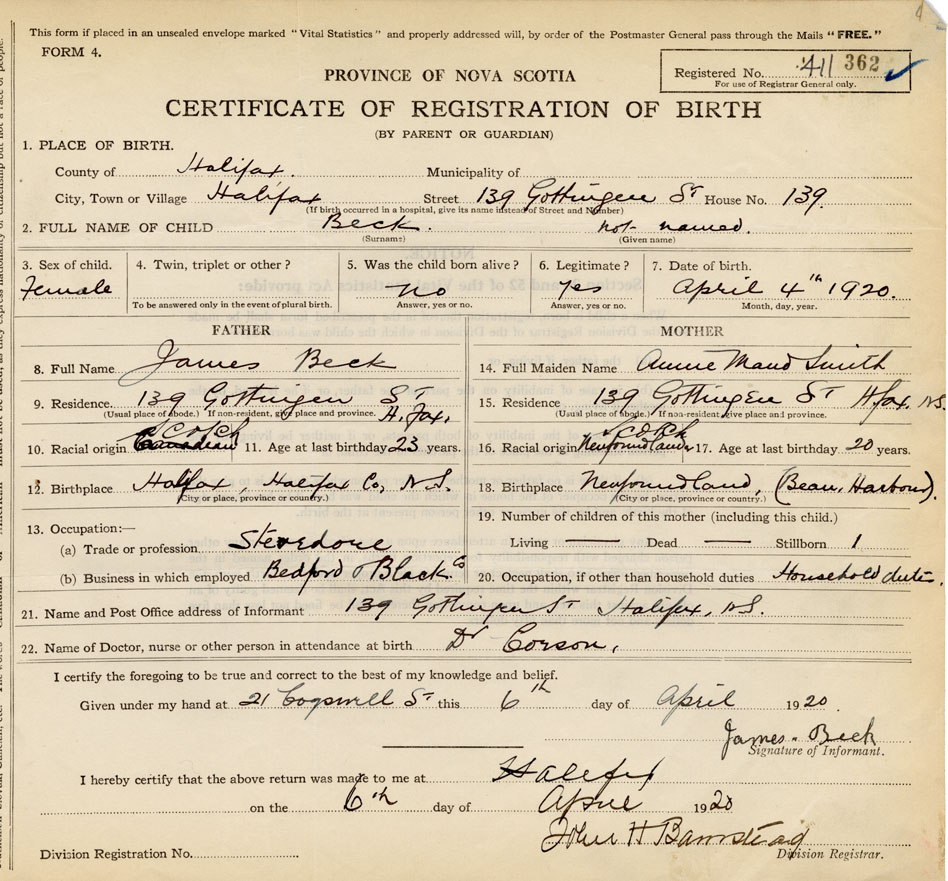 This form if placed in an unsealed envelope marked "Vital Statistics" and properly addressed will, by order of the Postmaster General pass through the Mails "FREE."
FORM 4.
Registered No. 411 362
For use of Registrar General only.
PROVINCE OF NOVA SCOTIA
CERTIFICATE OF REGISTRATION OF BIRTH
(BY PARENT OR GUARDIAN)
1. PLACE OF BIRTH.
County of Halifax. Municipality of
City, Town or Village Halifax Street 139 Gottingen St House No. 139
(If birth occurred in a hospital, give its name instead of Street and Number)
2. FULL NAME OF CHILD Beck. not named.
(Surname) (Given name)
3. Sex of child. 4. Twin, triplet or other? 5. Was the child born alive? 6. Legitimate? 7. Date of birth.
Female no yes April 4th 1920.
To be answered only in the event of plural birth. Answer, yes or no. Answer, yes or no. Month, day, year.
FATHER MOTHER
8. Full Name James Beck 14. Full Maiden Name Annie Maud Smith
9. Residence. 139 Gottingen St H.fax. 15. Residence 139 Gottingen St Hfax. N.S
(Usual place of abode.) If non-resident, give place and province. (Usual place of abode.) If non-resident give place and province.
10. Racial origin Canadian Scotch 11. Age at last birthday 23 years. 16. Racial origin Newfoundland Scotch 17. Age at last birthday 20 years.
12. Birthplace Halfax, Halifax Co, N.S. 18. Birthplace Newfoundland, (Beau Harbour).
(City or place, province or country.) (City or place, province or country.)
13. Occupation:— 19. Number of children of this mother (including this child.)
(a) Trade or profession Stevedore Living — Dead — Stillborn 1
(b) Business in which employed Bedford & Black Co 20. Occupation, if other than household duties Household duties.
21. Name and Post Office address of Informant 139 Gottingen St Halifax, N.S.
22. Name of Doctor, nurse or other person in attendance at birth Dr Corson,
I certify the foregoing to be true and correct to the best of my knowledge and belief.
Given under my hand at 21 Cogswell St this 6th day of April 1920.
James Beck
Signature of Informant.
I hereby certify that the above return was made to me at Halifax
on the 6th day of April 1920
John H Barnstead
Division Registration No. Division Registrar.